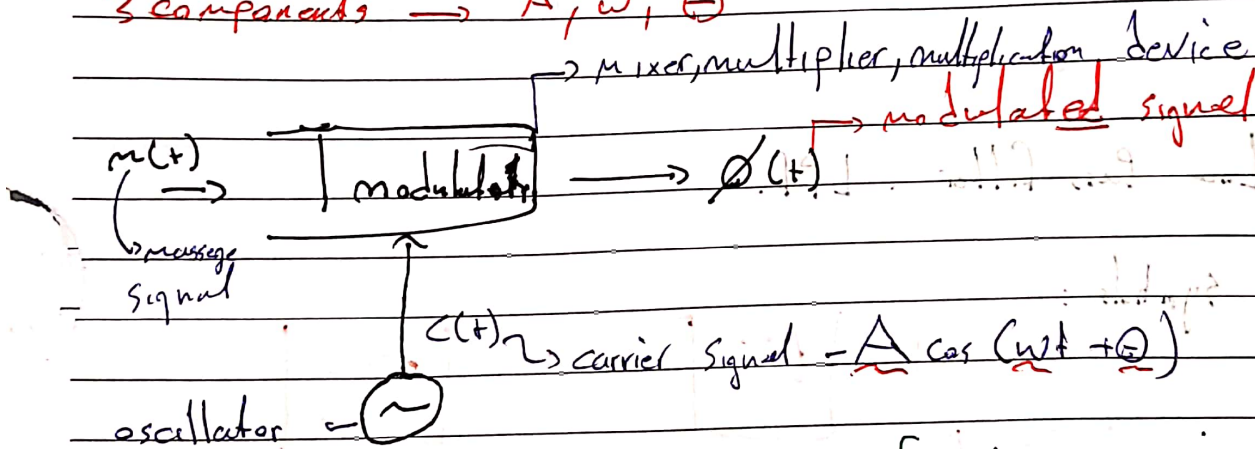 3 components → A, ω, Θ
→ Mixer, multiplier, multiplication device
→ modulated signal
m(t) → modulator → ∅(t)
massege
signal
c(t) → carrier signal = A cos (ωt + Θ)
oscillator